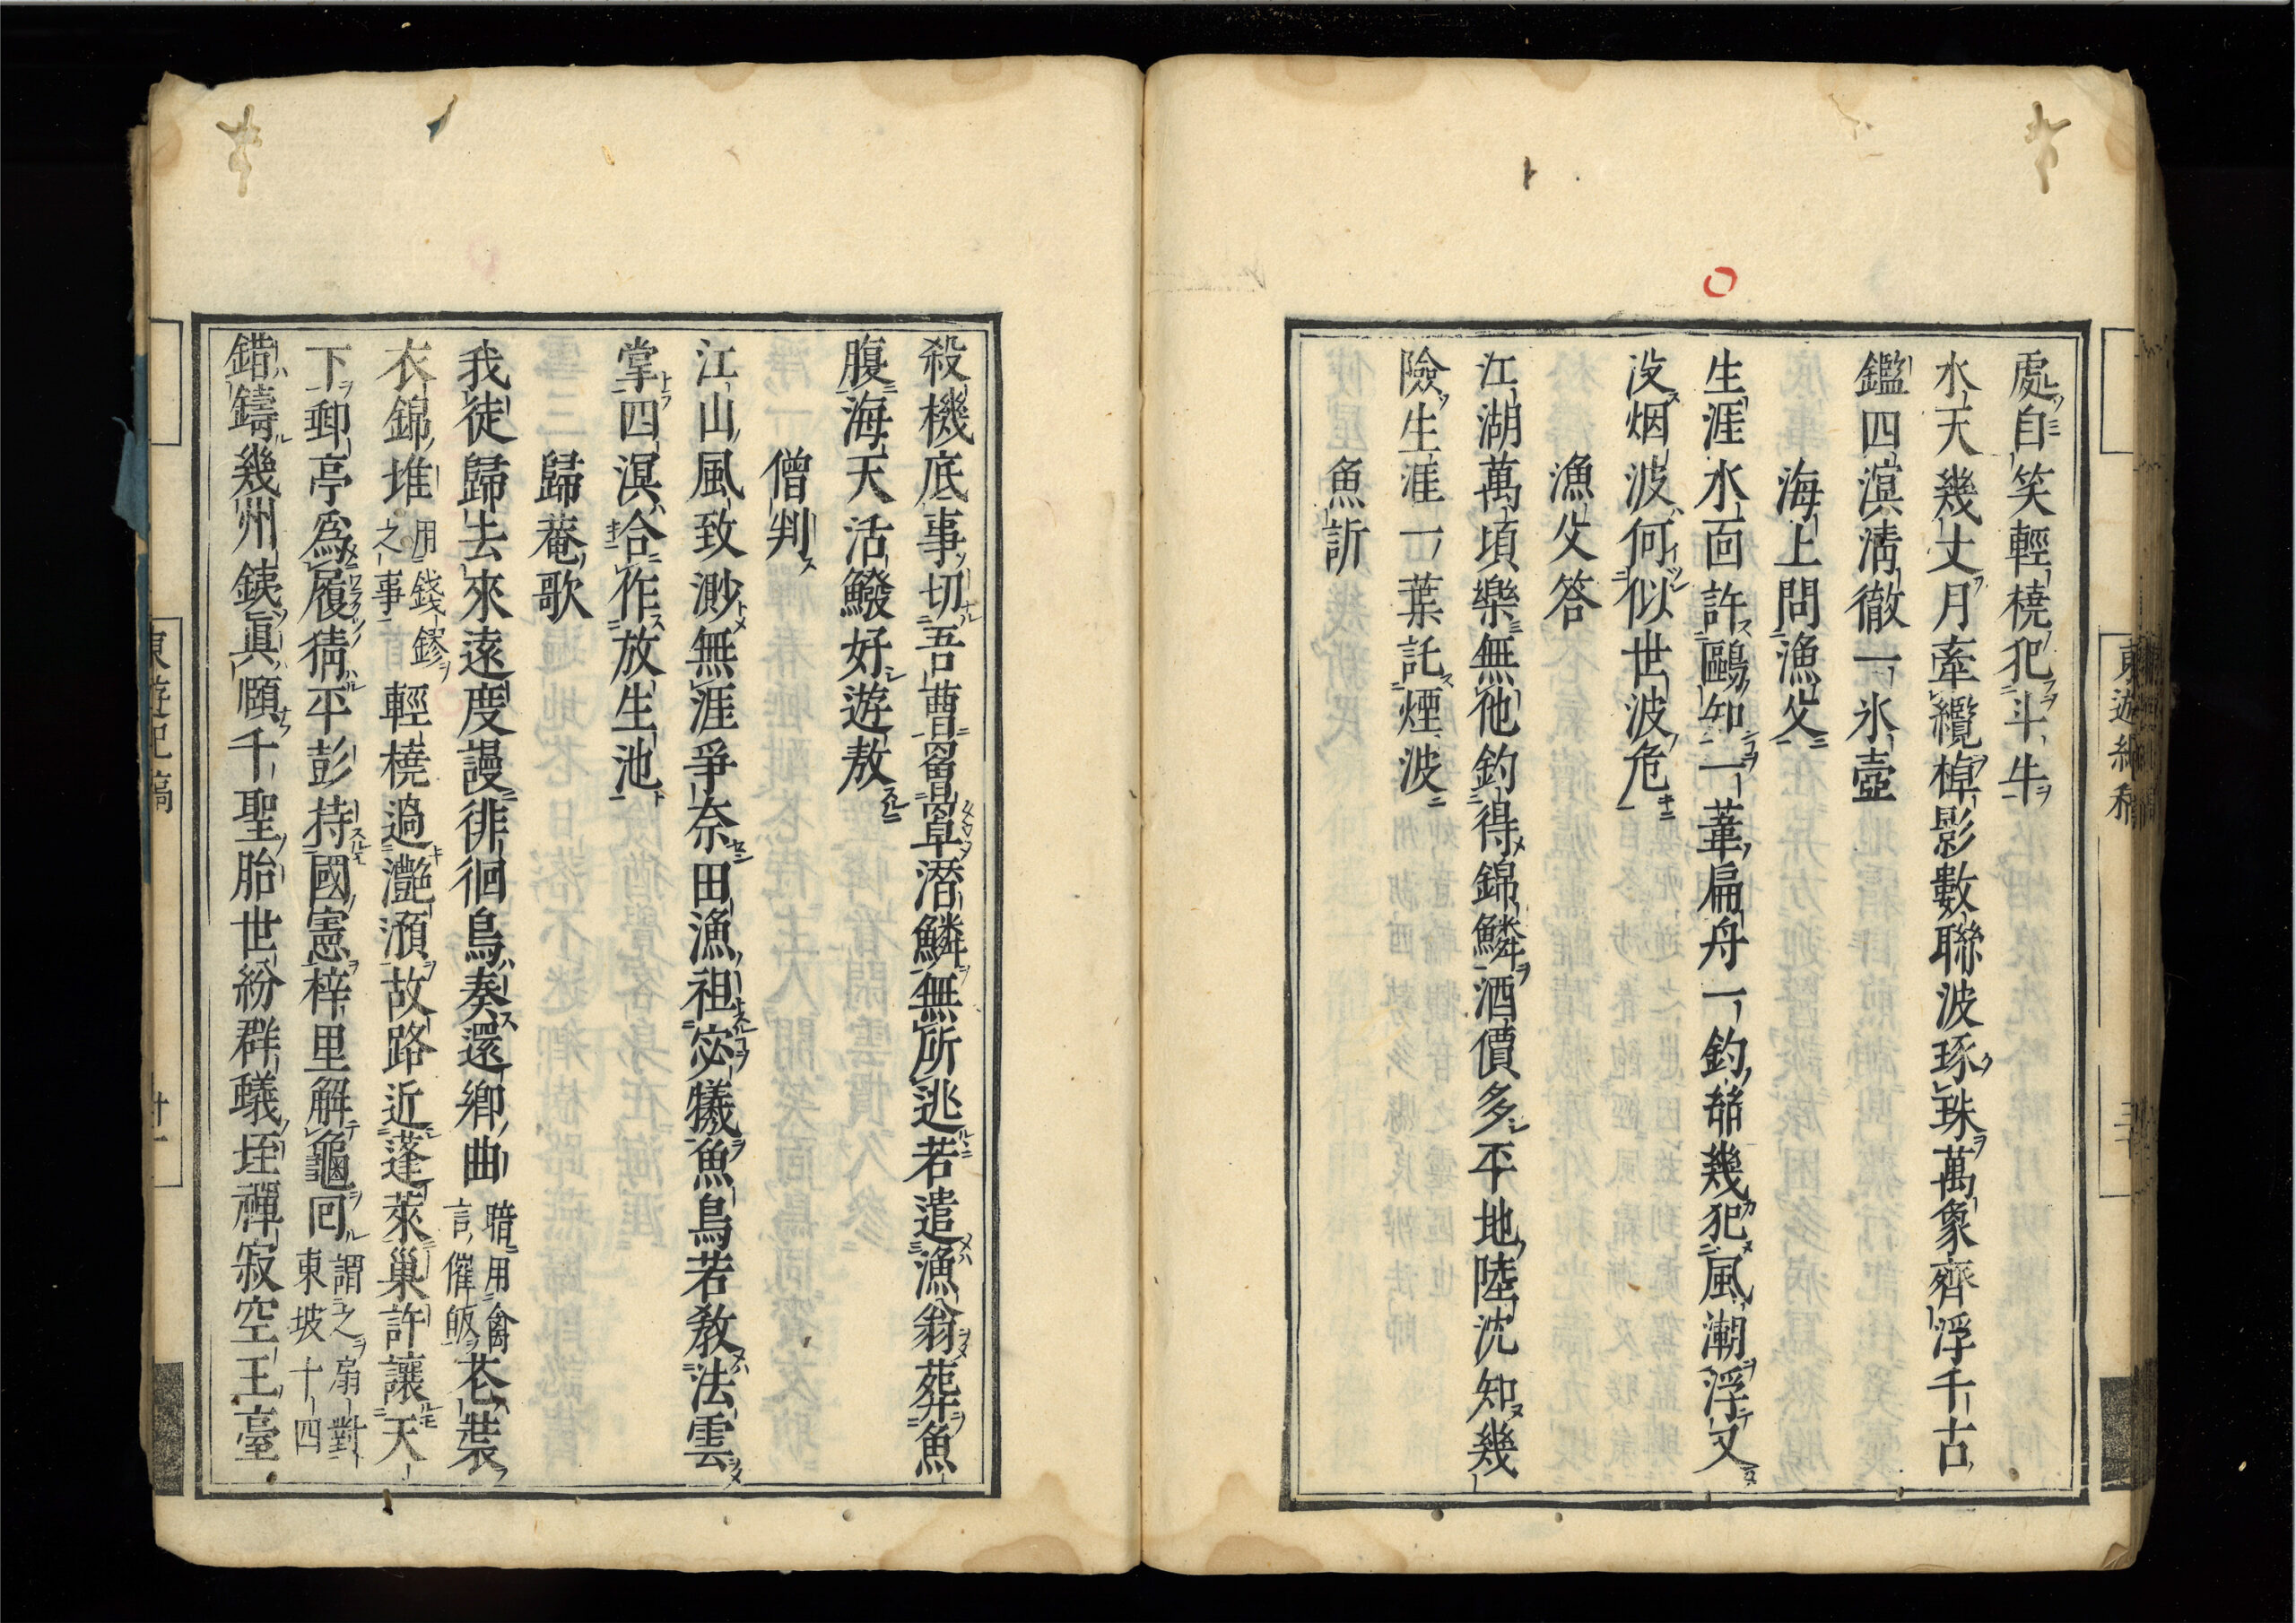 處自笑輕橈犯斗牛
水天幾丈月牽纜棹影數聯波琢珠萬象齊浮千古
鑑四溟清徹一氷壺
海上問漁父
生涯水面許鷗知一葦扁舟一釣緡幾犯風潮浮又
没烟波何似世波危
漁父答
江湖萬頃樂無他釣得錦鱗酒價多平地陸沈知幾
險生涯一葉託煙波
魚訴
殺機底事切吾曹罾罩潜鱗無所逃若遣漁翁葬魚
腹海天活鱍好遊敖
僧判
江山風致渺無涯爭奈田漁祖宓犧魚鳥若教法雲
掌四溟合作放生池
歸菴歌
我徒歸去來遠度謾徘徊鳥奏還鄉曲暗用禽言催皈花裝
衣錦堆用錢鏐之事輕橈過灔澦故路近蓬萊巢許讓天
下郵亭爲履猜平彭持國憲梓里解龜回謂之扇對東坡十四
錯鑄幾州鐵眞頤千聖胎世紛群蟻垤禪寂空王臺
東遊紀稿